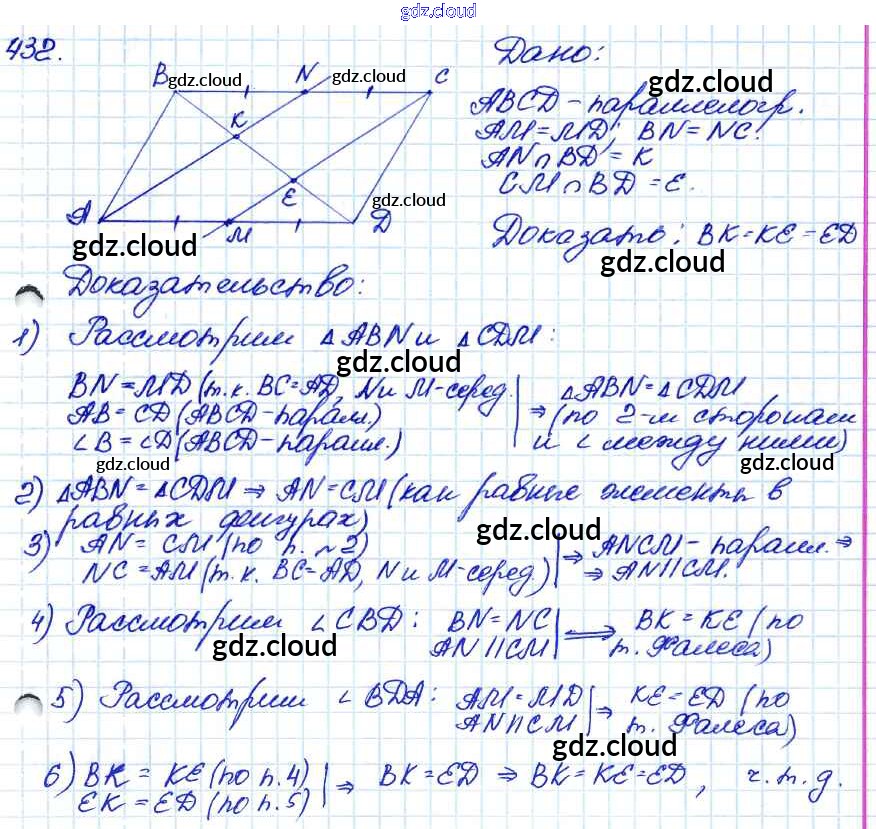 gdz.cloud
432.
B gdz.cloud N gdz.cloud C
K
E
A M D
gdz.cloud
gdz.cloud
Дано:
gdz.cloud
ABCD - параллелогр.
AM = MD; BN = NC.
AN ∩ BD = K
CM ∩ BD = E.
Доказать: BK = KE = ED
gdz.cloud
Доказательство:
1) Рассмотрим △ABN и △CDM:
gdz.cloud
BN = MD (т.к. BC = AD, N и M - серед.
AB = CD (ABCD - парал.)
∠B = ∠D (ABCD - паралл.)
⇒ △ABN = △CDM
(по 2-м сторонам
и ∠ между ними)
gdz.cloud
gdz.cloud
2) △ABN = △CDM ⇒ AN = CM (как равные элементы в
равных фигурах)
gdz.cloud
3) AN = CM (по п. ~2)
NC = AM (т.к. BC = AD, N и M - серед)
⇒ ANCM - паралл. ⇒
⇒ AN || CM.
4) Рассмотрим ∠CBD: BN = NC
AN || CM
⇒ BK = KE (по
т. Фалеса)
gdz.cloud
gdz.cloud
5) Рассмотрим ∠BDA: AM = MD
AN || CM
⇒ KE = ED (по
т. Фалеса)
gdz.cloud
6) BK = KE (по п. 4)
EK = ED (по п. 5)
⇒ BK = ED ⇒ BK = KE = ED, ч.т.д.